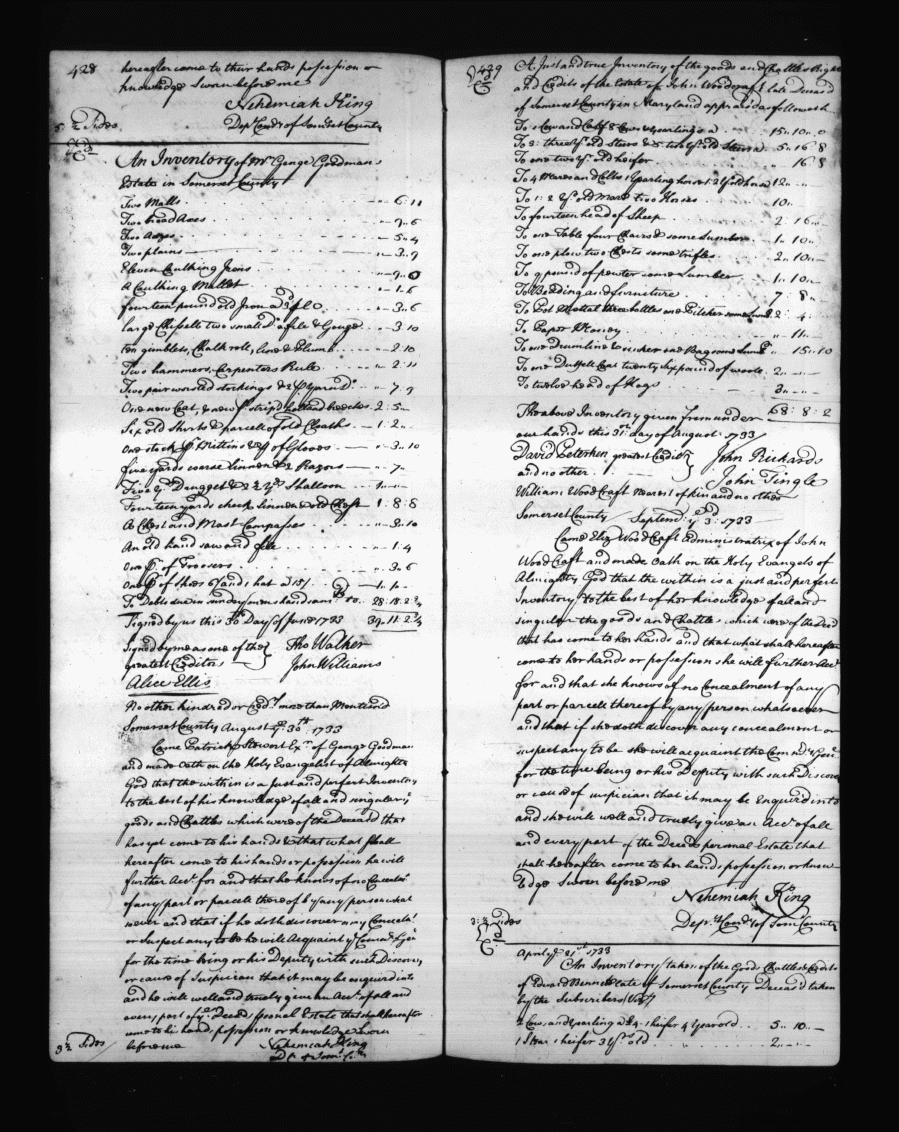 428
hereafter come to their hands possession or
knowledge Sworn before me
Nehemiah King
Dep. Com.ry of Somerset County
5 ½ Sides
An Inventory of Mr George Goodmans
Estate in Somerset County
Two Malls .. 6.11
Two broad Axes .. 9.6
Two Adzes .. 5.4
Two plains .. 3.9
Eleven Caulking Irons .. 9.0
A Caulking Mallet .. 1.6
fourteen pound old Iron .. 3.6
large Chissells two small Do a file & Gouge .. 3.10
ten gimblets, Chalk roll, line & Plumb .. 2.10
Two hammers, Carpenters Rule .. 2.11
Two pair worsted stockings & 2 pr yarn Do .. 7.9
One new Coat, & new pr stript holland breeches 2:5
Six old Shirts & parcell of old Cloaths 1:2
One stock pr Mittins & pr of Gloves .. 3.10
five yards coarse linnen & 2 Razors .. 7
Five yds Drugget & 2 ½ yds Shalloon 1
Fourteen yards check linnen & old Chest 1:8:8
A Chest and Mast Compasses .. 2.10
An old hand saw and file .. 1:4
One pr of Trousers .. 3.6
One pr of Shoes 6/ and 1 hat a 15/ 1..1
To Debts due in sundry mens hands am.t to 28:18:2 ¾
Signed by us this 30 Day of June 1733 39.11.2 ¾
Signed by me as one of the greatest Creditors
Tho Walker
John Williams
Alice Ellis
No other kindred or Cred.rs more than Mentioned
Somerset County August ye 30th 1733
Came Patrick Stewart Ex.r of George Goodman
and made Oath on the Holy Evangelist of Almighty
God that the within is a just and perfect Inventory
to the best of his knowledge of all and singular ye
goods and Chattles which were of the Deceasd that
has yet come to his hands & that what shall
hereafter come to his hands or possession he will
further Acc.t for and that he knows of no Conceal.t
of any part or parcel thereof by any person what
soever and that if he doth discover any Conceal.t
or Suspect any to be he will Acquaint ye Comm.ry Gen.l
for the time being or his Deputy with such Discovery
or cause of Suspicion that it may be enquired into
and he will well and truely give an Acc.t of all and
every part of ye Deced.s personal Estate that shall hereafter
come to his hands possession or knowledge Sworn
before me Nehemiah King
3 ½ Sides
429
A Just and true Inventory of the goods and Chattles Rights
and Credits of the Estate of John Woodcraft late Deceasd
of Somerset County in Maryland appraisd as followeth
To 1 Cow and Calf 8 Cows & yearlings a 15..10..0
To 3: three yr old Steers & 5 two yr old Steers 5..16 8
To one two yr old heifer .. 16 8
To 4 Mares and Colts 1 yearling horse 1 2 yr old horse 12
To 1: 2 yr old Mare two Horses 10
To fourteen head of Sheep 2 16
To one Table four Chairs & some Lumber 1..10
To one plow two Chests some trifles 2..10
To 9 pound of pewter some Lumber 1..10
To Bedding and Furniture 7:8
To Pot Mettal three bottles one Pitcher some 2:4
To Paper Money .. 11
.. 15..10
To one Duffell Coat twenty six pound of wool 2
To twelve head of Hogs 3
The above Inventory given from under 68:8:2
our hands this 31st day of August 1733
David Peterken greatest Creditr
and no other
John Rickards
John Tingle
William Woodcraft nearest of kin and no other
Somerset County Septemr ye 3d: 1733
Came Eliz Woodcraft Administratrix of John
Woodcraft and made Oath on the Holy Evangels of
Almighty God that the within is a just and perfect
Inventory to the best of her knowledge of all and
singular the goods and Chattles which were of the Decd
that has come to her hands and that what shall hereafter
come to her hands or possession she will further Acct
for and that she knows of no Concealment of any
part or parcell thereof by any person whatsoever
and that if she doth discover any concealment or
suspect any to be she will acquaint the Com.ry Genl
for the time being or his Deputy with such Discovery
or cause of suspician that it may be Enquird into
and she will well and truely give an Acct of all
and every part of the Deceds personal Estate that
shall hereafter come to her hands possession or know
ledge Sworn before me
Nehemiah King
Dep.ty Com.ry of Som County
3: ¾ Sides
April ye 21st 1733
An Inventory taken of the Goods Chattles & Credits
of Edward Bennet late of Somerset County Deceasd taken
by the Subscribers (Viz)
2 Cows and yearling a £4.. 1 heifer 4 year old 5..10
1 Steer 1 heifer 3 yrs old 2